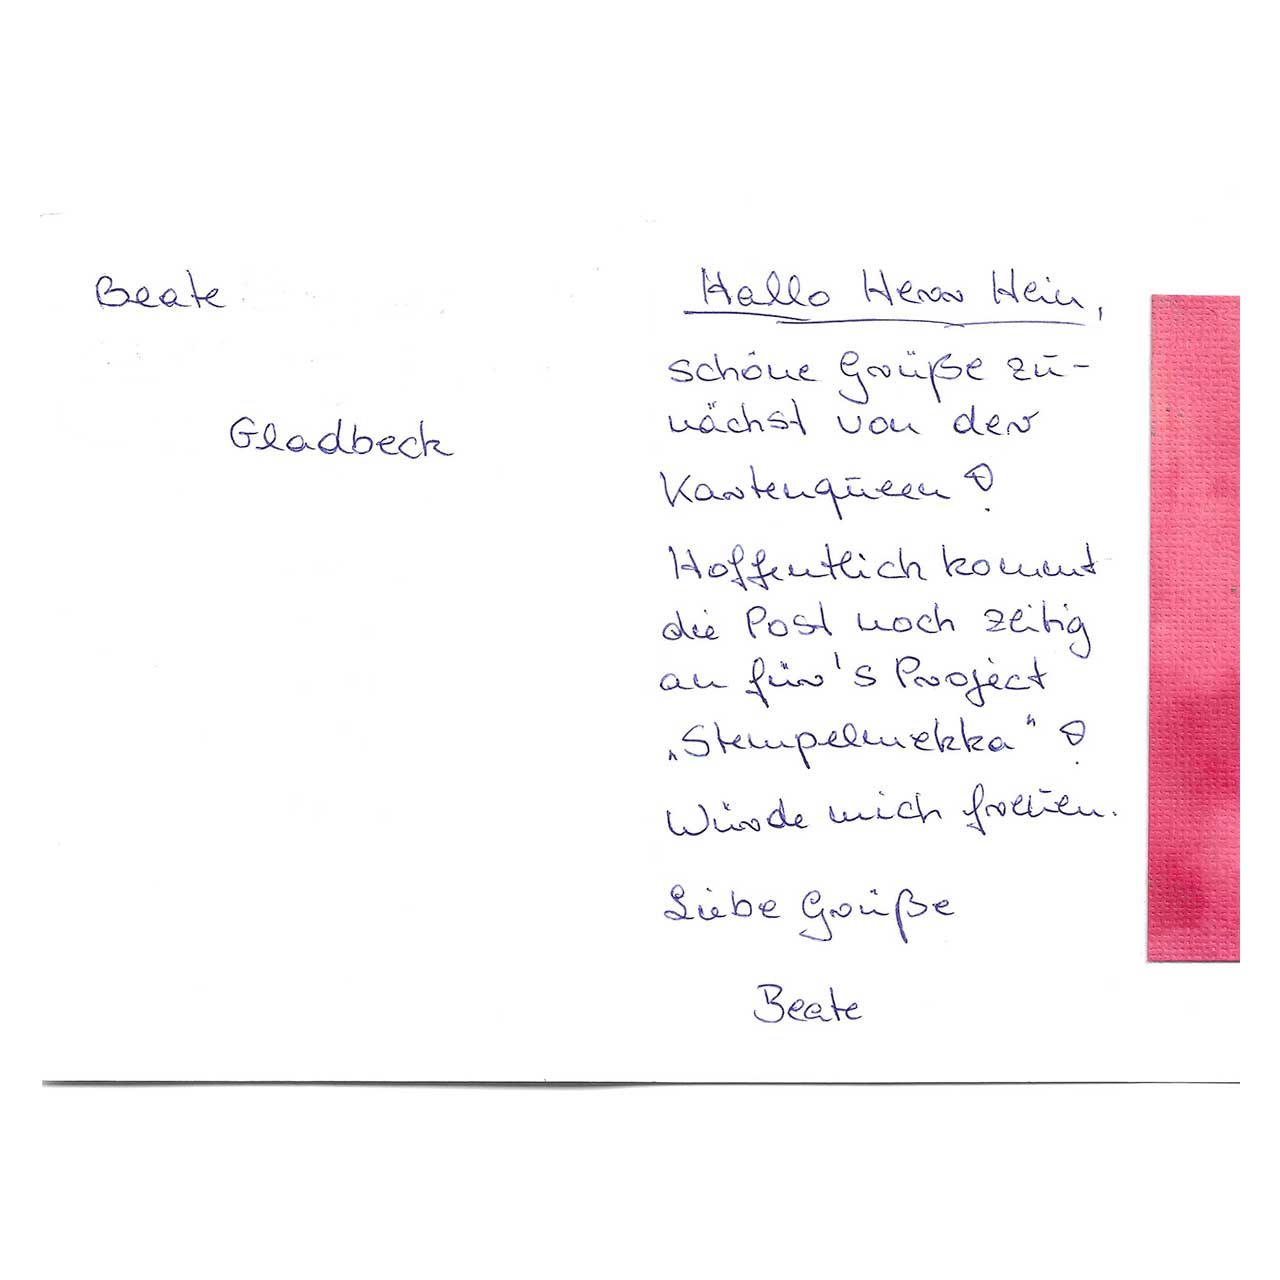 Beate
Gladbeck
Hallo Herr Hein,
schöne Grüße zu-
nächst von der
Kartenqueen!
Hoffentlich kommt
die Post noch zeitig
an für's Project
„Stempelmekka"!
Würde mich freuen.
Liebe Grüße
Beate